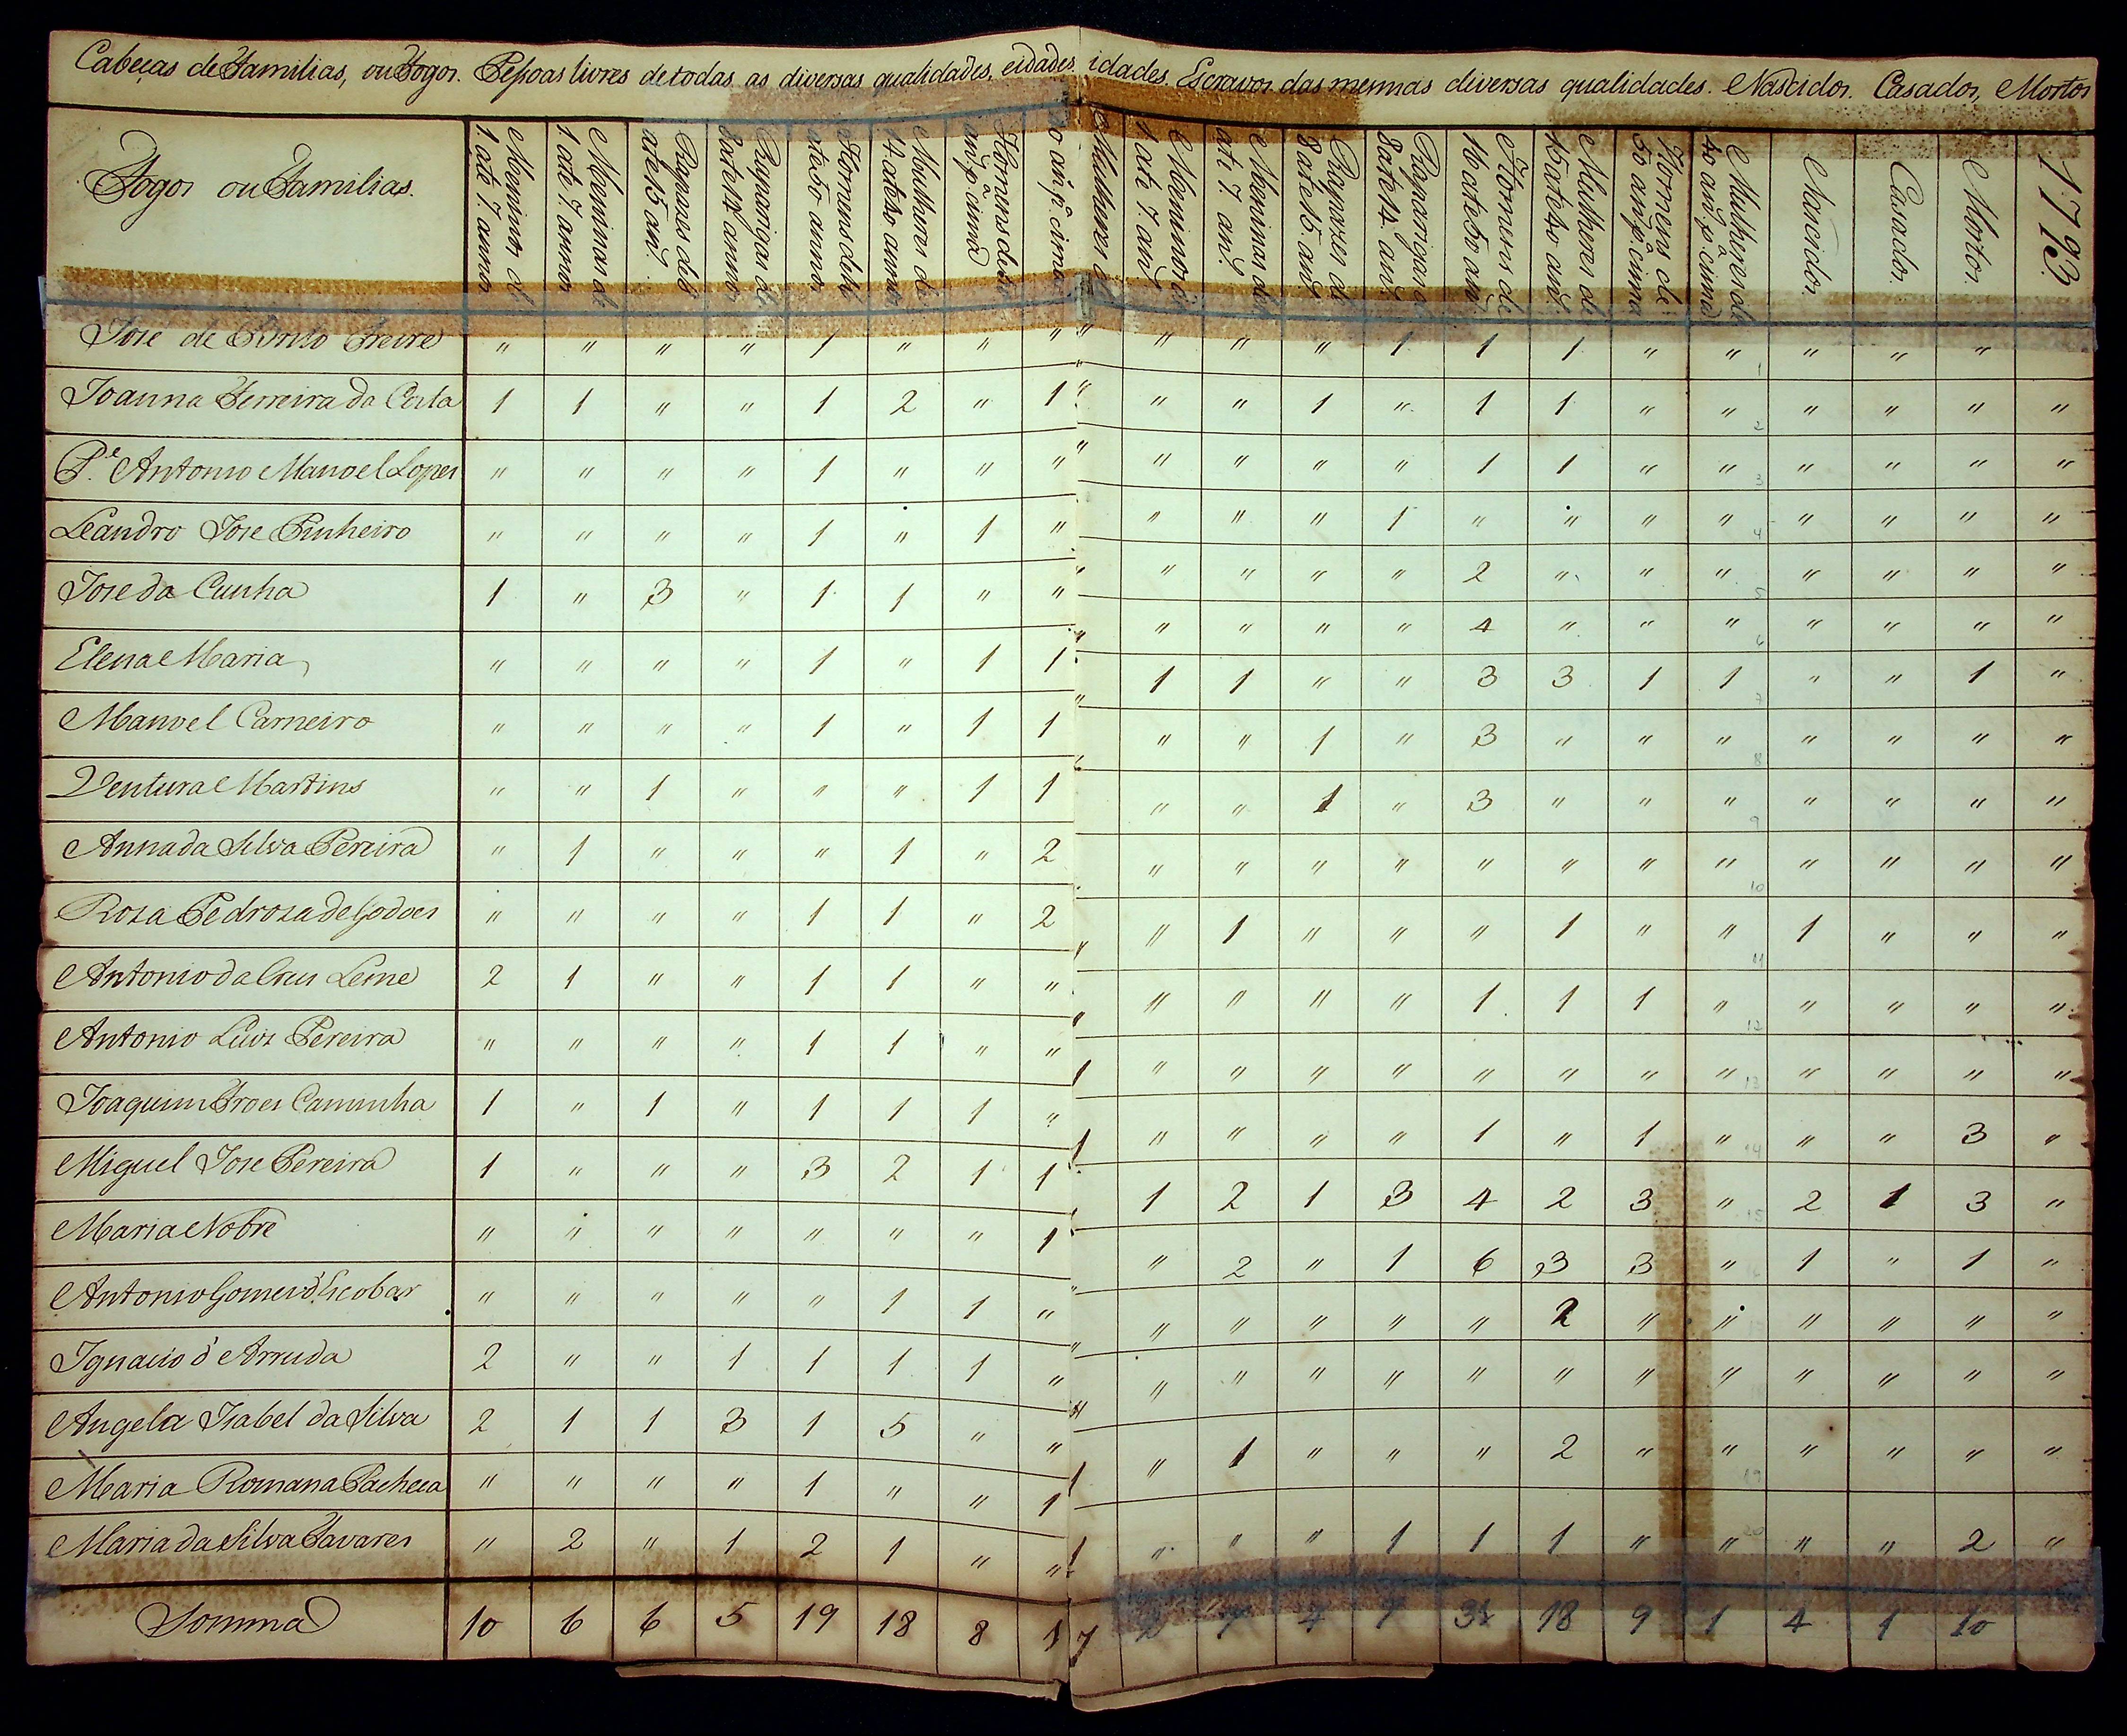 Cabeças de Familias, ou Fogos. Pessoas livres de todas as diversas qualidades, e idades idades. Escravos das mesmas diversas qualidades. Nascidos. Casados, Mortos
Fogos ou Familias.
Meninos de 1 ate 7 annos
Meninas de 1 ate 7 annos
Rapazes de 8 ate 15 an.
Raparigas de 8 ate 14 annos
Homens de 16 ate 50 annos
Mulheres de 14 ate 40 annos
Homens de an. pª cima
an. pª cima
Mulheres de
Meninos de 1 ate 7 an.
Meninas de ate 7 an.
Rapazes de 8 ate 15 an.
Raparigas de 8 ate 14 an.
Homens de 16 ate 50 an.
Mulheres de 15 ate 40 an.
Homens de 50 an. pª cima
Mulheres de 40 an. pª cima
Nascidos.
Casados.
Mortos.
1793
Jose de Brito Freire " " " " 1 " " " " " " " 1 1 1 " " " " "
Joanna Ferreira da Costa 1 1 " " 1 2 " 1 " " " 1 " 1 1 " " " " " "
P.e Antonio Manoel Lopes " " " " 1 " " " " " " " " 1 1 " " " " " "
Leandro Jose Pinheiro " " " " 1 " 1 " " " " 1 " " " " " " " "
Jose da Cunha 1 " 3 " 1 1 " " " " " " " 2 " " " " " " "
Elena Maria " " " " 1 " 1 1 " " " " " 4 " " " " " " "
Manoel Carneiro " " " " 1 " 1 1 " 1 1 " " 3 3 1 1 " " 1 "
Ventura Martins " " 1 " " " 1 1 " " " 1 " 3 " " " " " " "
Anna da Silva Pereira " 1 " " " 1 " 2 " " 1 " 3 " " " " " " "
Rosa Pedrosa de Godoes " " " " 1 1 " 2 " " " " " " " " " " " "
Antonio da Crus Leme 2 1 " " 1 1 " " " " 1 " " " 1 " " 1 " " "
Antonio Luis Pereira " " " " 1 1 " " " " " " " 1 1 1 " " " " "
Joaquim Froes Caminha 1 " 1 " 1 1 1 " 1 " " " " " " " " " " " "
Miguel Jose Pereira 1 " " " 3 2 1 1 1 " " " " 1 " 1 " " " 3 "
Maria Nobre " " " " " " " 1 1 2 1 3 4 2 3 " 2 1 3 "
Antonio Gomes d'Escobar " " " " " 1 1 " " " 2 " 1 6 3 3 " 1 " 1 "
Ignacio d'Arruda 2 " " 1 1 1 1 " " " " " " " 2 " " " " " "
Angela Isabel da Silva 2 1 1 3 1 5 " " " " " " " " " " " " " " "
Maria Romana Pacheca " " " " 1 " " 1 1 " 1 " " " 2 " " " " " "
Maria da Silva Tavares " 2 " 1 2 1 " " 1 " " " 1 1 1 " " " " 2 "
Somma 10 6 6 5 19 18 8 7 18 9 1 4 1 10